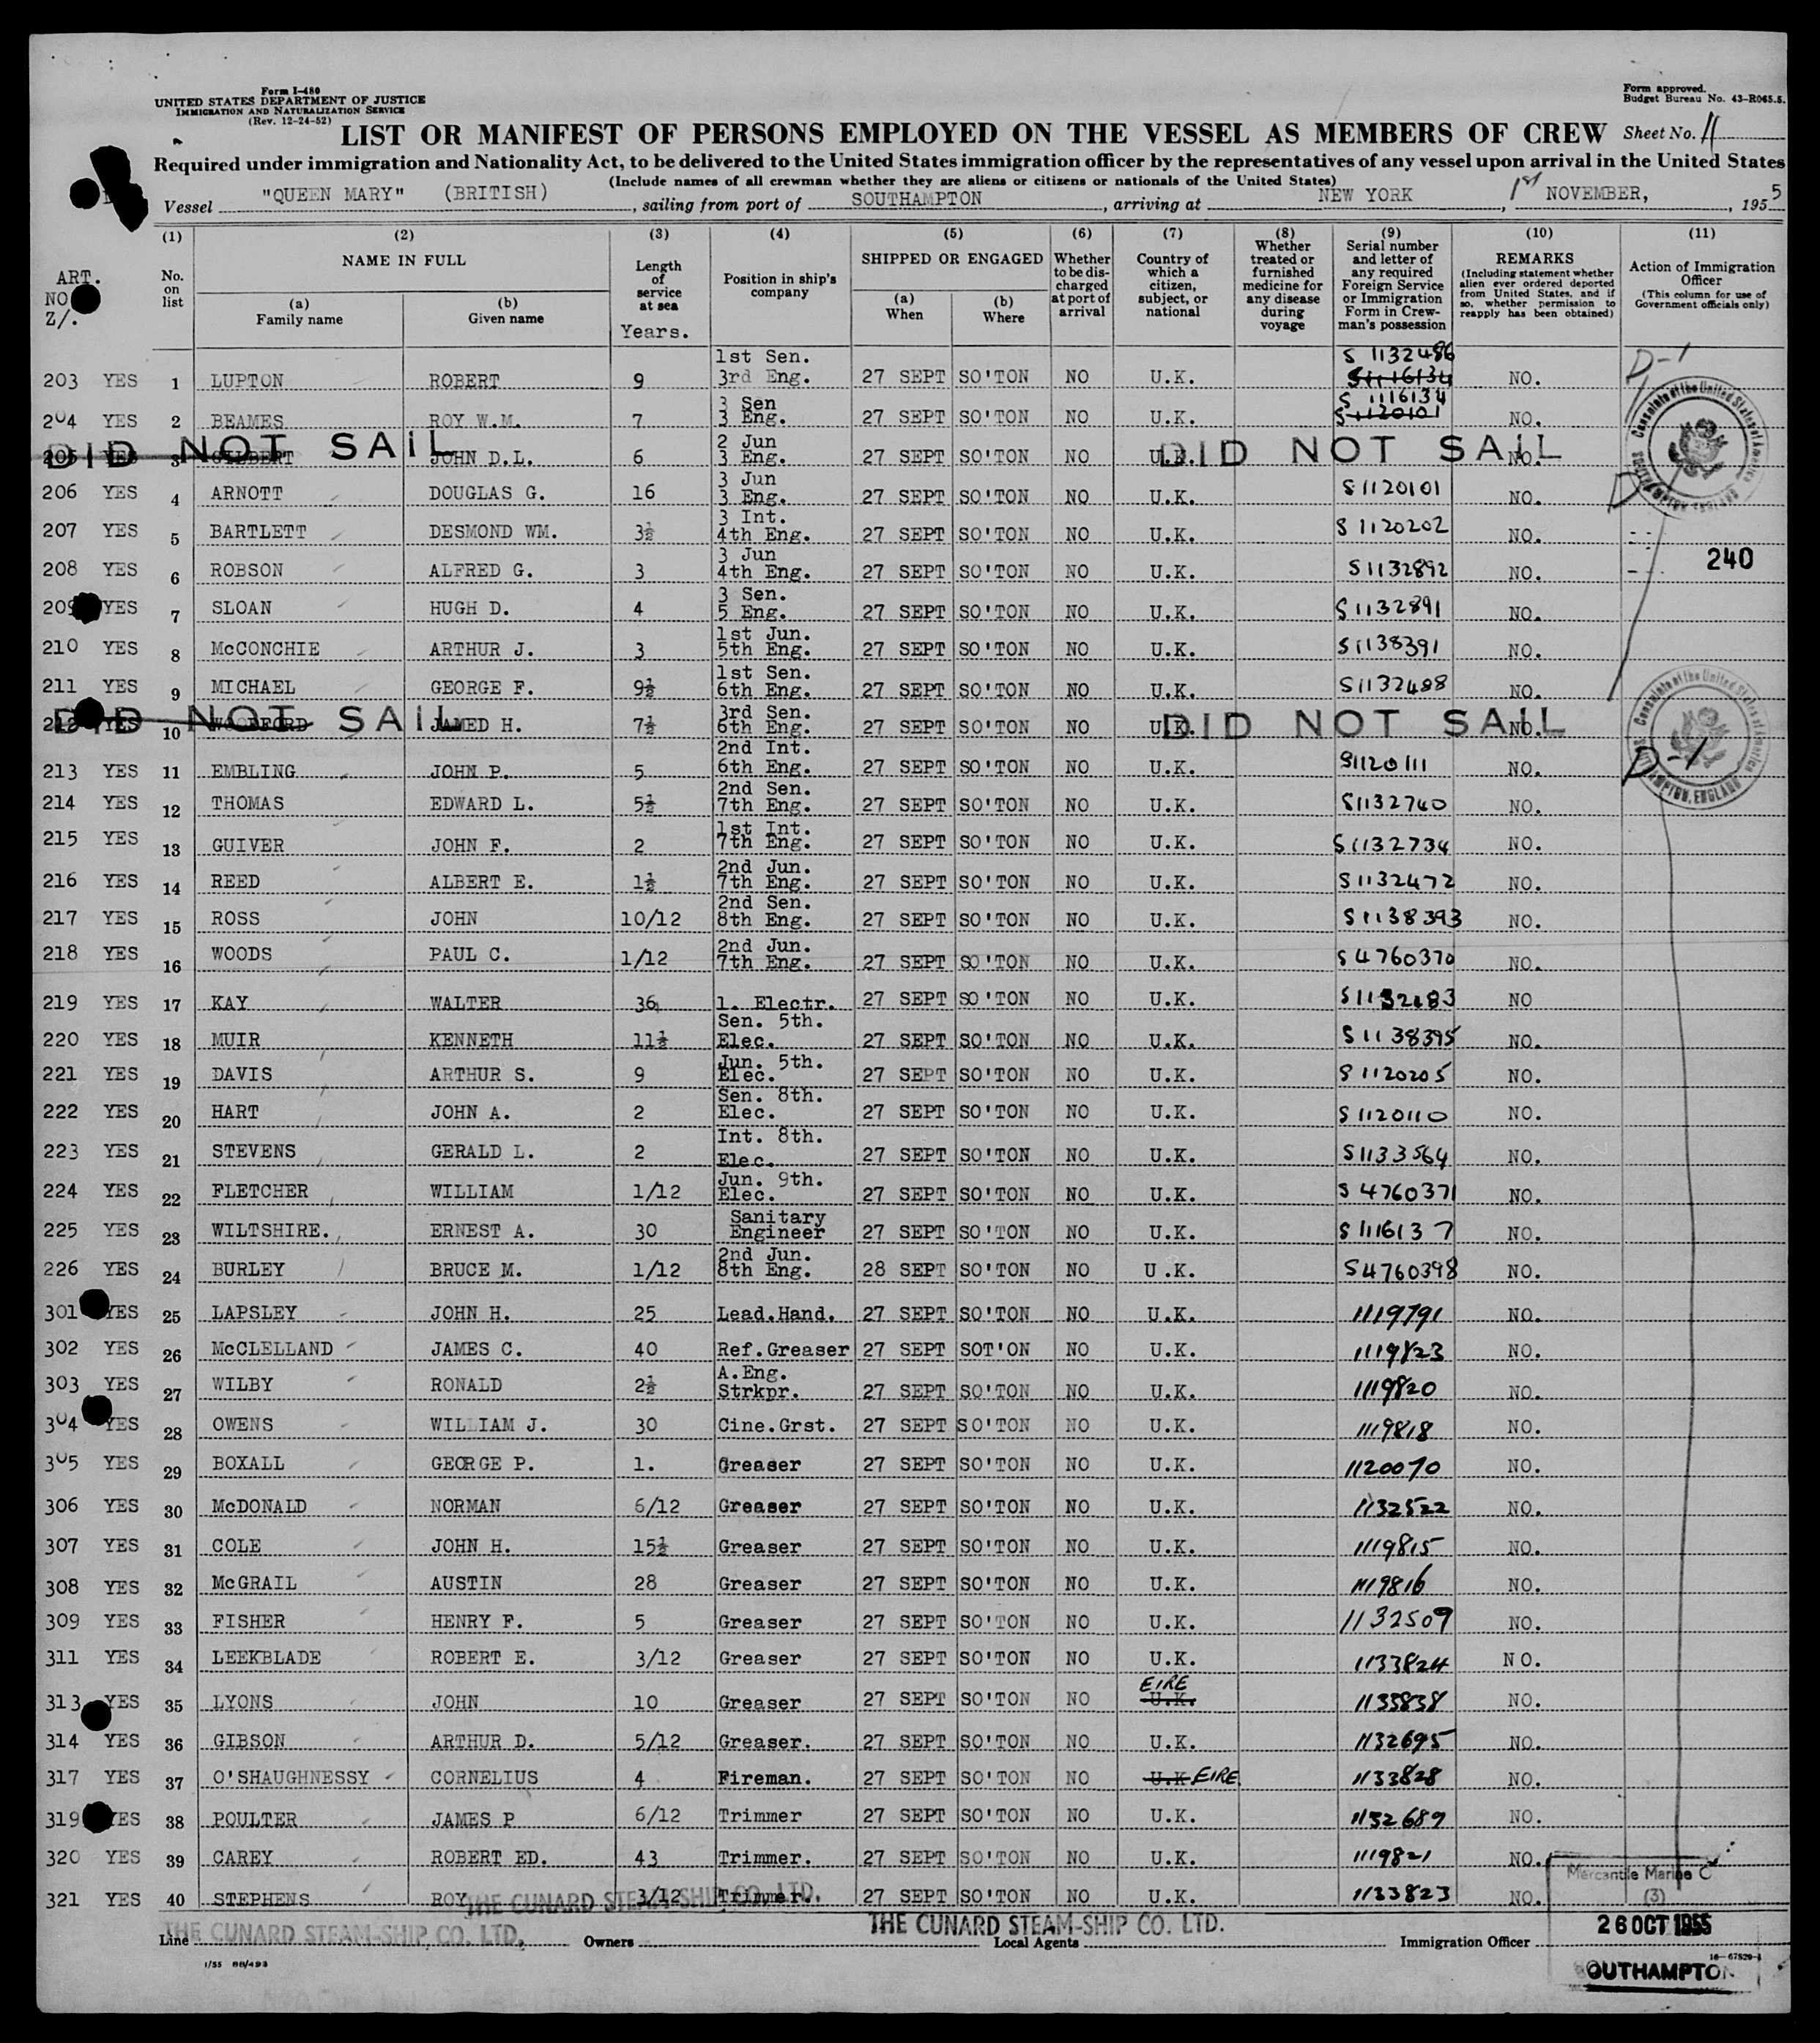 Form I-480
UNITED STATES DEPARTMENT OF JUSTICE
IMMIGRATION AND NATURALIZATION SERVICE
(Rev. 12-24-52)
Form approved.
Budget Bureau No. 43-R065.5.
LIST OR MANIFEST OF PERSONS EMPLOYED ON THE VESSEL AS MEMBERS OF CREW Sheet No. 11
Required under immigration and Nationality Act, to be delivered to the United States immigration officer by the representatives of any vessel upon arrival in the United States
(Include names of all crewman whether they are aliens or citizens or nationals of the United States)
Vessel "QUEEN MARY" (BRITISH), sailing from port of SOUTHAMPTON, arriving at NEW YORK, 1st NOVEMBER, 1955
ART. NO Z/.
(1) No. on list
(2) NAME IN FULL (a) Family name (b) Given name
(3) Length of service at sea Years.
(4) Position in ship's company
(5) SHIPPED OR ENGAGED (a) When (b) Where
(6) Whether to be discharged at port of arrival
(7) Country of which a citizen, subject, or national
(8) Whether treated or furnished medicine for any disease during voyage
(9) Serial number and letter of any required Foreign Service or Immigration Form in Crewman's possession
(10) REMARKS (Including statement whether alien ever ordered deported from United States, and if so, whether permission to reapply has been obtained)
(11) Action of Immigration Officer (This column for use of Government officials only)
203 YES 1 LUPTON ROBERT 9 1st Sen. 3rd Eng. 27 SEPT SO'TON NO U.K. S 1132486 S1116134 NO. D-1
204 YES 2 BEAMES ROY W.M. 7 3 Sen 3 Eng. 27 SEPT SO'TON NO U.K. S 1116134 S1120101 NO.
205 YES 3 GILBERT JOHN D.L. 6 2 Jun 3 Eng. 27 SEPT SO'TON NO U.K. NO.
DID NOT SAIL DID NOT SAIL
206 YES 4 ARNOTT DOUGLAS G. 16 3 Jun 3 Eng. 27 SEPT SO'TON NO U.K. S1120101 NO.
207 YES 5 BARTLETT DESMOND WM. 3½ 3 Int. 4th Eng. 27 SEPT SO'TON NO U.K. S 1120202 NO.
208 YES 6 ROBSON ALFRED G. 3 3 Jun 4th Eng. 27 SEPT SO'TON NO U.K. S1132892 NO. 240
209 YES 7 SLOAN HUGH D. 4 3 Sen. 5 Eng. 27 SEPT SO'TON NO U.K. S1132891 NO.
210 YES 8 McCONCHIE ARTHUR J. 3 1st Jun. 5th Eng. 27 SEPT SO'TON NO U.K. S1138391 NO.
211 YES 9 MICHAEL GEORGE F. 9½ 1st Sen. 6th Eng. 27 SEPT SO'TON NO U.K. S1132488 NO.
212 YES 10 WOODFORD JAMED H. 7½ 3rd Sen. 6th Eng. 27 SEPT SO'TON NO U.K. NO.
DID NOT SAIL DID NOT SAIL
213 YES 11 EMBLING JOHN P. 5 2nd Int. 6th Eng. 27 SEPT SO'TON NO U.K. S1120111 NO. D-1
214 YES 12 THOMAS EDWARD L. 5½ 2nd Sen. 7th Eng. 27 SEPT SO'TON NO U.K. S1132740 NO.
215 YES 13 GUIVER JOHN F. 2 1st Int. 7th Eng. 27 SEPT SO'TON NO U.K. S1132734 NO.
216 YES 14 REED ALBERT E. 1½ 2nd Jun. 7th Eng. 27 SEPT SO'TON NO U.K. S1132472 NO.
217 YES 15 ROSS JOHN 10/12 2nd Sen. 8th Eng. 27 SEPT SO'TON NO U.K. S1138393 NO.
218 YES 16 WOODS PAUL C. 1/12 2nd Jun. 7th Eng. 27 SEPT SO'TON NO U.K. S 4760370 NO.
219 YES 17 KAY WALTER 36 1. Electr. 27 SEPT SO'TON NO U.K. NO
220 YES 18 MUIR KENNETH 11½ Sen. 5th. Elec. 27 SEPT SO'TON NO U.K. S 1138395 NO.
221 YES 19 DAVIS ARTHUR S. 9 Jun. 5th. Elec. 27 SEPT SO'TON NO U.K. S 1120205 NO.
222 YES 20 HART JOHN A. 2 Sen. 8th. Elec. 27 SEPT SO'TON NO U.K. S 1120110 NO.
223 YES 21 STEVENS GERALD L. 2 Int. 8th. Elec. 27 SEPT SO'TON NO U.K. S1133564 NO.
224 YES 22 FLETCHER WILLIAM 1/12 Jun. 9th. Elec. 27 SEPT SO'TON NO U.K. S 4760371 NO.
225 YES 23 WILTSHIRE. ERNEST A. 30 Sanitary Engineer 27 SEPT SO'TON NO U.K. S 1116137 NO.
226 YES 24 BURLEY BRUCE M. 1/12 2nd Jun. 8th Eng. 28 SEPT SO'TON NO U.K. S4760398 NO.
301 YES 25 LAPSLEY JOHN H. 25 Lead.Hand. 27 SEPT SO'TON NO U.K. 1119791 NO.
302 YES 26 McCLELLAND JAMES C. 40 Ref.Greaser 27 SEPT SOT'ON NO U.K. 1119823 NO.
303 YES 27 WILBY RONALD 2½ A.Eng. Strkpr. 27 SEPT SO'TON NO U.K. 1119820 NO.
304 YES 28 OWENS WILLIAM J. 30 Cine.Grst. 27 SEPT SO'TON NO U.K. 1119818 NO.
305 YES 29 BOXALL GEORGE P. 1. Greaser 27 SEPT SO'TON NO U.K. 1120070 NO.
306 YES 30 McDONALD NORMAN 6/12 Greaser 27 SEPT SO'TON NO U.K. 1132522 NO.
307 YES 31 COLE JOHN H. 15½ Greaser 27 SEPT SO'TON NO U.K. 1119815 NO.
308 YES 32 McGRAIL AUSTIN 28 Greaser 27 SEPT SO'TON NO U.K. 1119816 NO.
309 YES 33 FISHER HENRY F. 5 Greaser 27 SEPT SO'TON NO U.K. 1132509 NO.
311 YES 34 LEEKBLADE ROBERT E. 3/12 Greaser 27 SEPT SO'TON NO U.K. 1133824 NO.
313 YES 35 LYONS JOHN 10 Greaser 27 SEPT SO'TON NO EIRE U.K. 1133838 NO.
314 YES 36 GIBSON ARTHUR D. 5/12 Greaser. 27 SEPT SO'TON NO U.K. 1132695 NO.
317 YES 37 O'SHAUGHNESSY CORNELIUS 4 Fireman. 27 SEPT SO'TON NO U.K EIRE 1133828 NO.
319 YES 38 POULTER JAMES P 6/12 Trimmer 27 SEPT SO'TON NO U.K. 1132689 NO.
320 YES 39 CAREY ROBERT ED. 43 Trimmer. 27 SEPT SO'TON NO U.K. 1119821 NO.
321 YES 40 STEPHENS ROY 3/12 Trimmer. 27 SEPT SO'TON NO U.K. 1133823 NO.
Consulate of the United States of America SOUTHAMPTON, ENGLAND
Consulate of the United States of America SOUTHAMPTON, ENGLAND
THE CUNARD STEAM-SHIP CO. LTD.
Line THE CUNARD STEAM-SHIP CO. LTD. Owners THE CUNARD STEAM-SHIP CO. LTD. Local Agents Immigration Officer
Mercantile Marine O
(3)
26 OCT 1955
SOUTHAMPTON
1/55 BB/493
16-67529-1